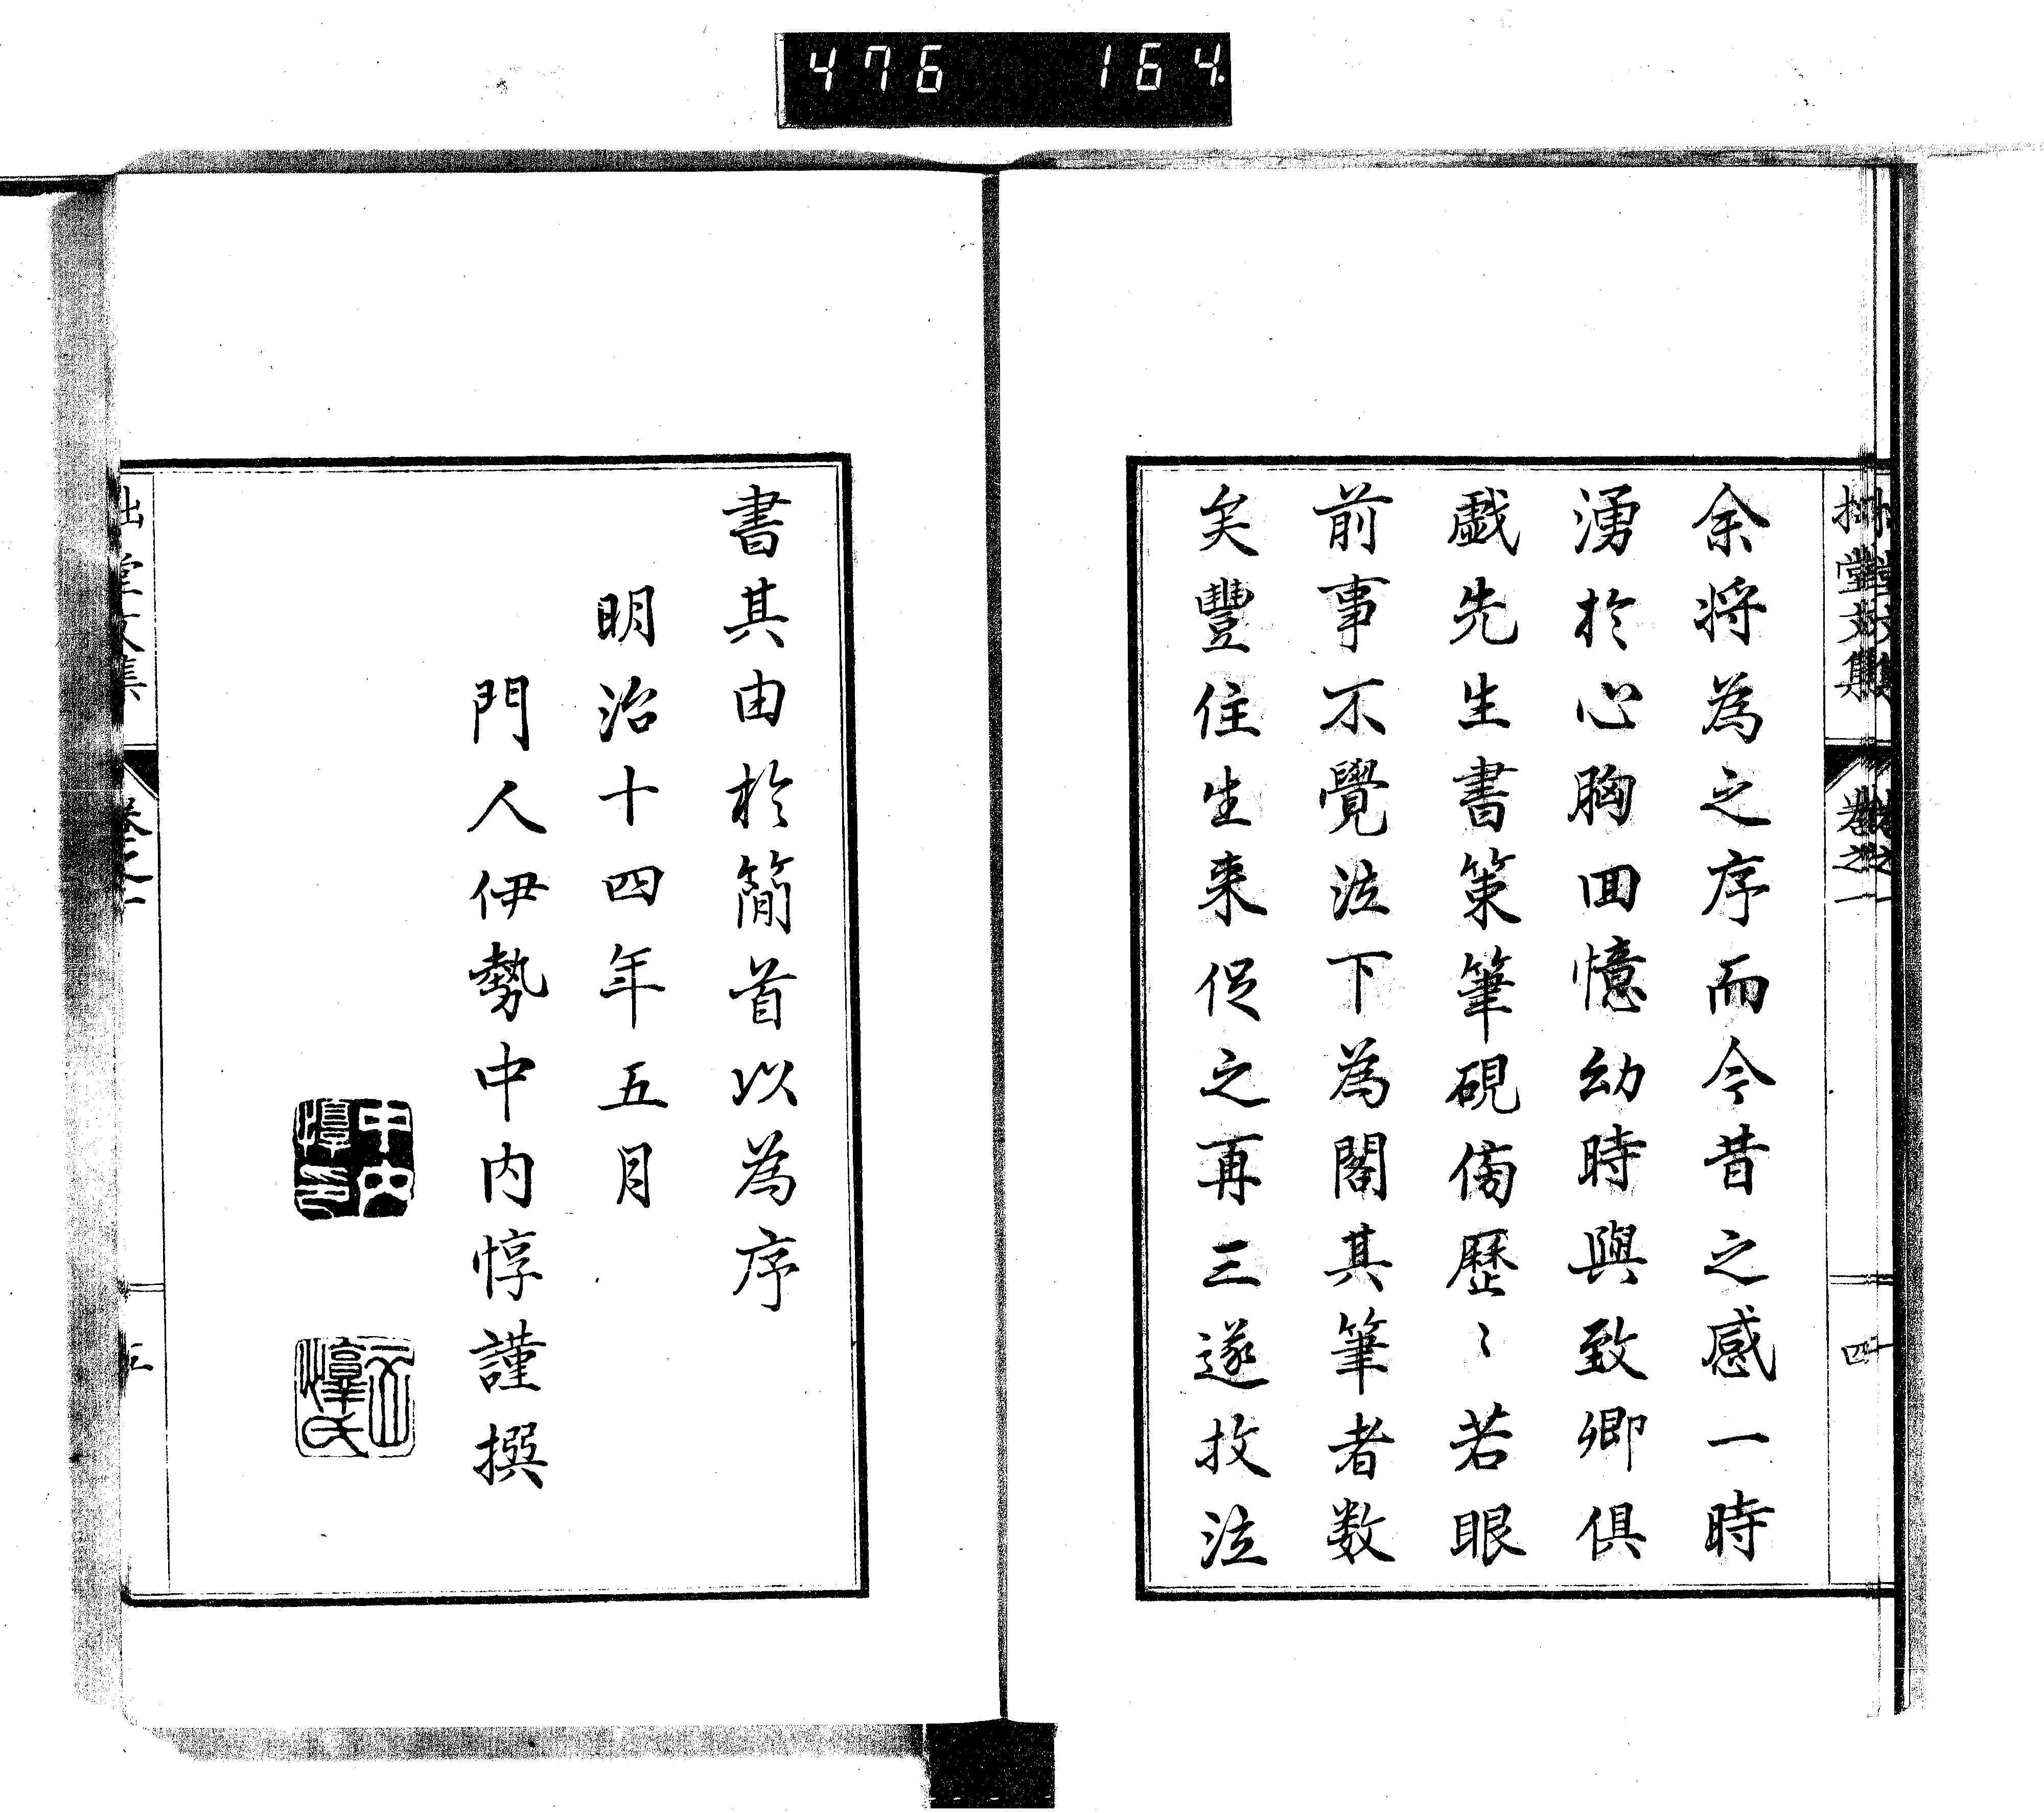 476 164
拙堂文集 卷之一 四
余将為之序而今昔之感一時
湧於心胸回憶幼時與致卿俱
戯先生書策筆硯傍歴〻若眼
前事不覺泣下為閣其筆者数
矣豐住生来促之再三遂抆泣
書其由於簡首以為序
明治十四年五月
門人伊勢中内惇謹撰
拙堂文集 卷之一